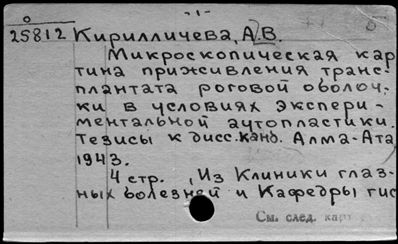 -1-
25812 Кирилличева, А.В.
Микроскопическая кар
тина приживления транс-
плантата роговой оболоч-
ки в условиях экспери-
ментальной аутопластики.
Тезисы к дисс.канд. Алма-Ата
1943.
4 стр. , Из Клиники глаз-
ных болезней и Кафедры гис
См. след. карт